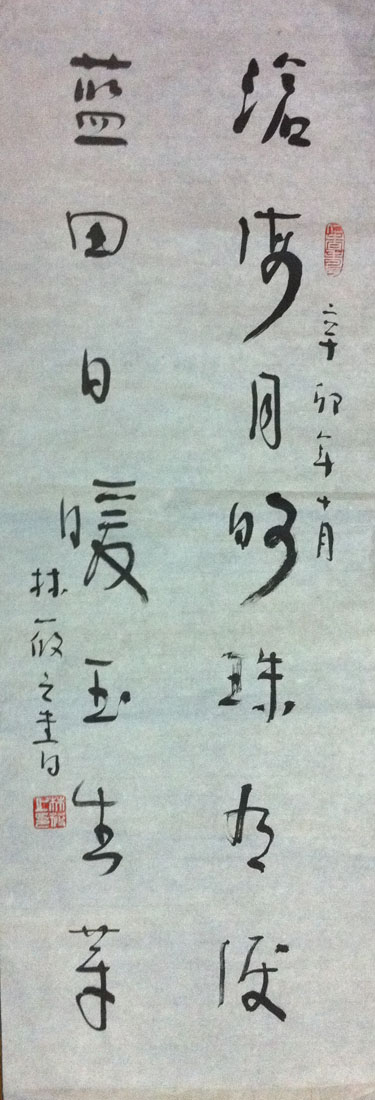 辛卯年十月
滄海月明珠有淚
藍田日暖玉生華
林筱之書